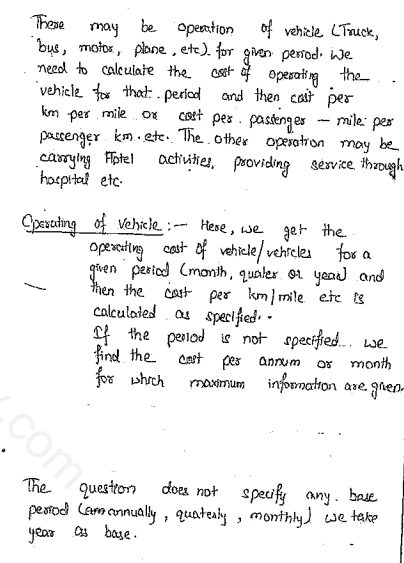 There may be operation of vehicle (Truck,
bus, motor, plane, etc) for given period. We
need to calculate the cost of operating the
vehicle for that period and then cost per
km per mile or cost per passenger - mile per
passenger km. etc. The other operation may be
carrying Hotel activities, providing service through
hospital etc.
Operating of Vehicle :- Here, we get the
operating cost of vehicle/vehicles for a
given period (month, quater or year) and
then the cost per km/mile etc is
calculated as specified.
If the period is not specified... we
find the cost per annum or month
for which maximum information are given.
The question does not specify any base
period (am annually, quaterly, monthly) we take
year as base.
.com